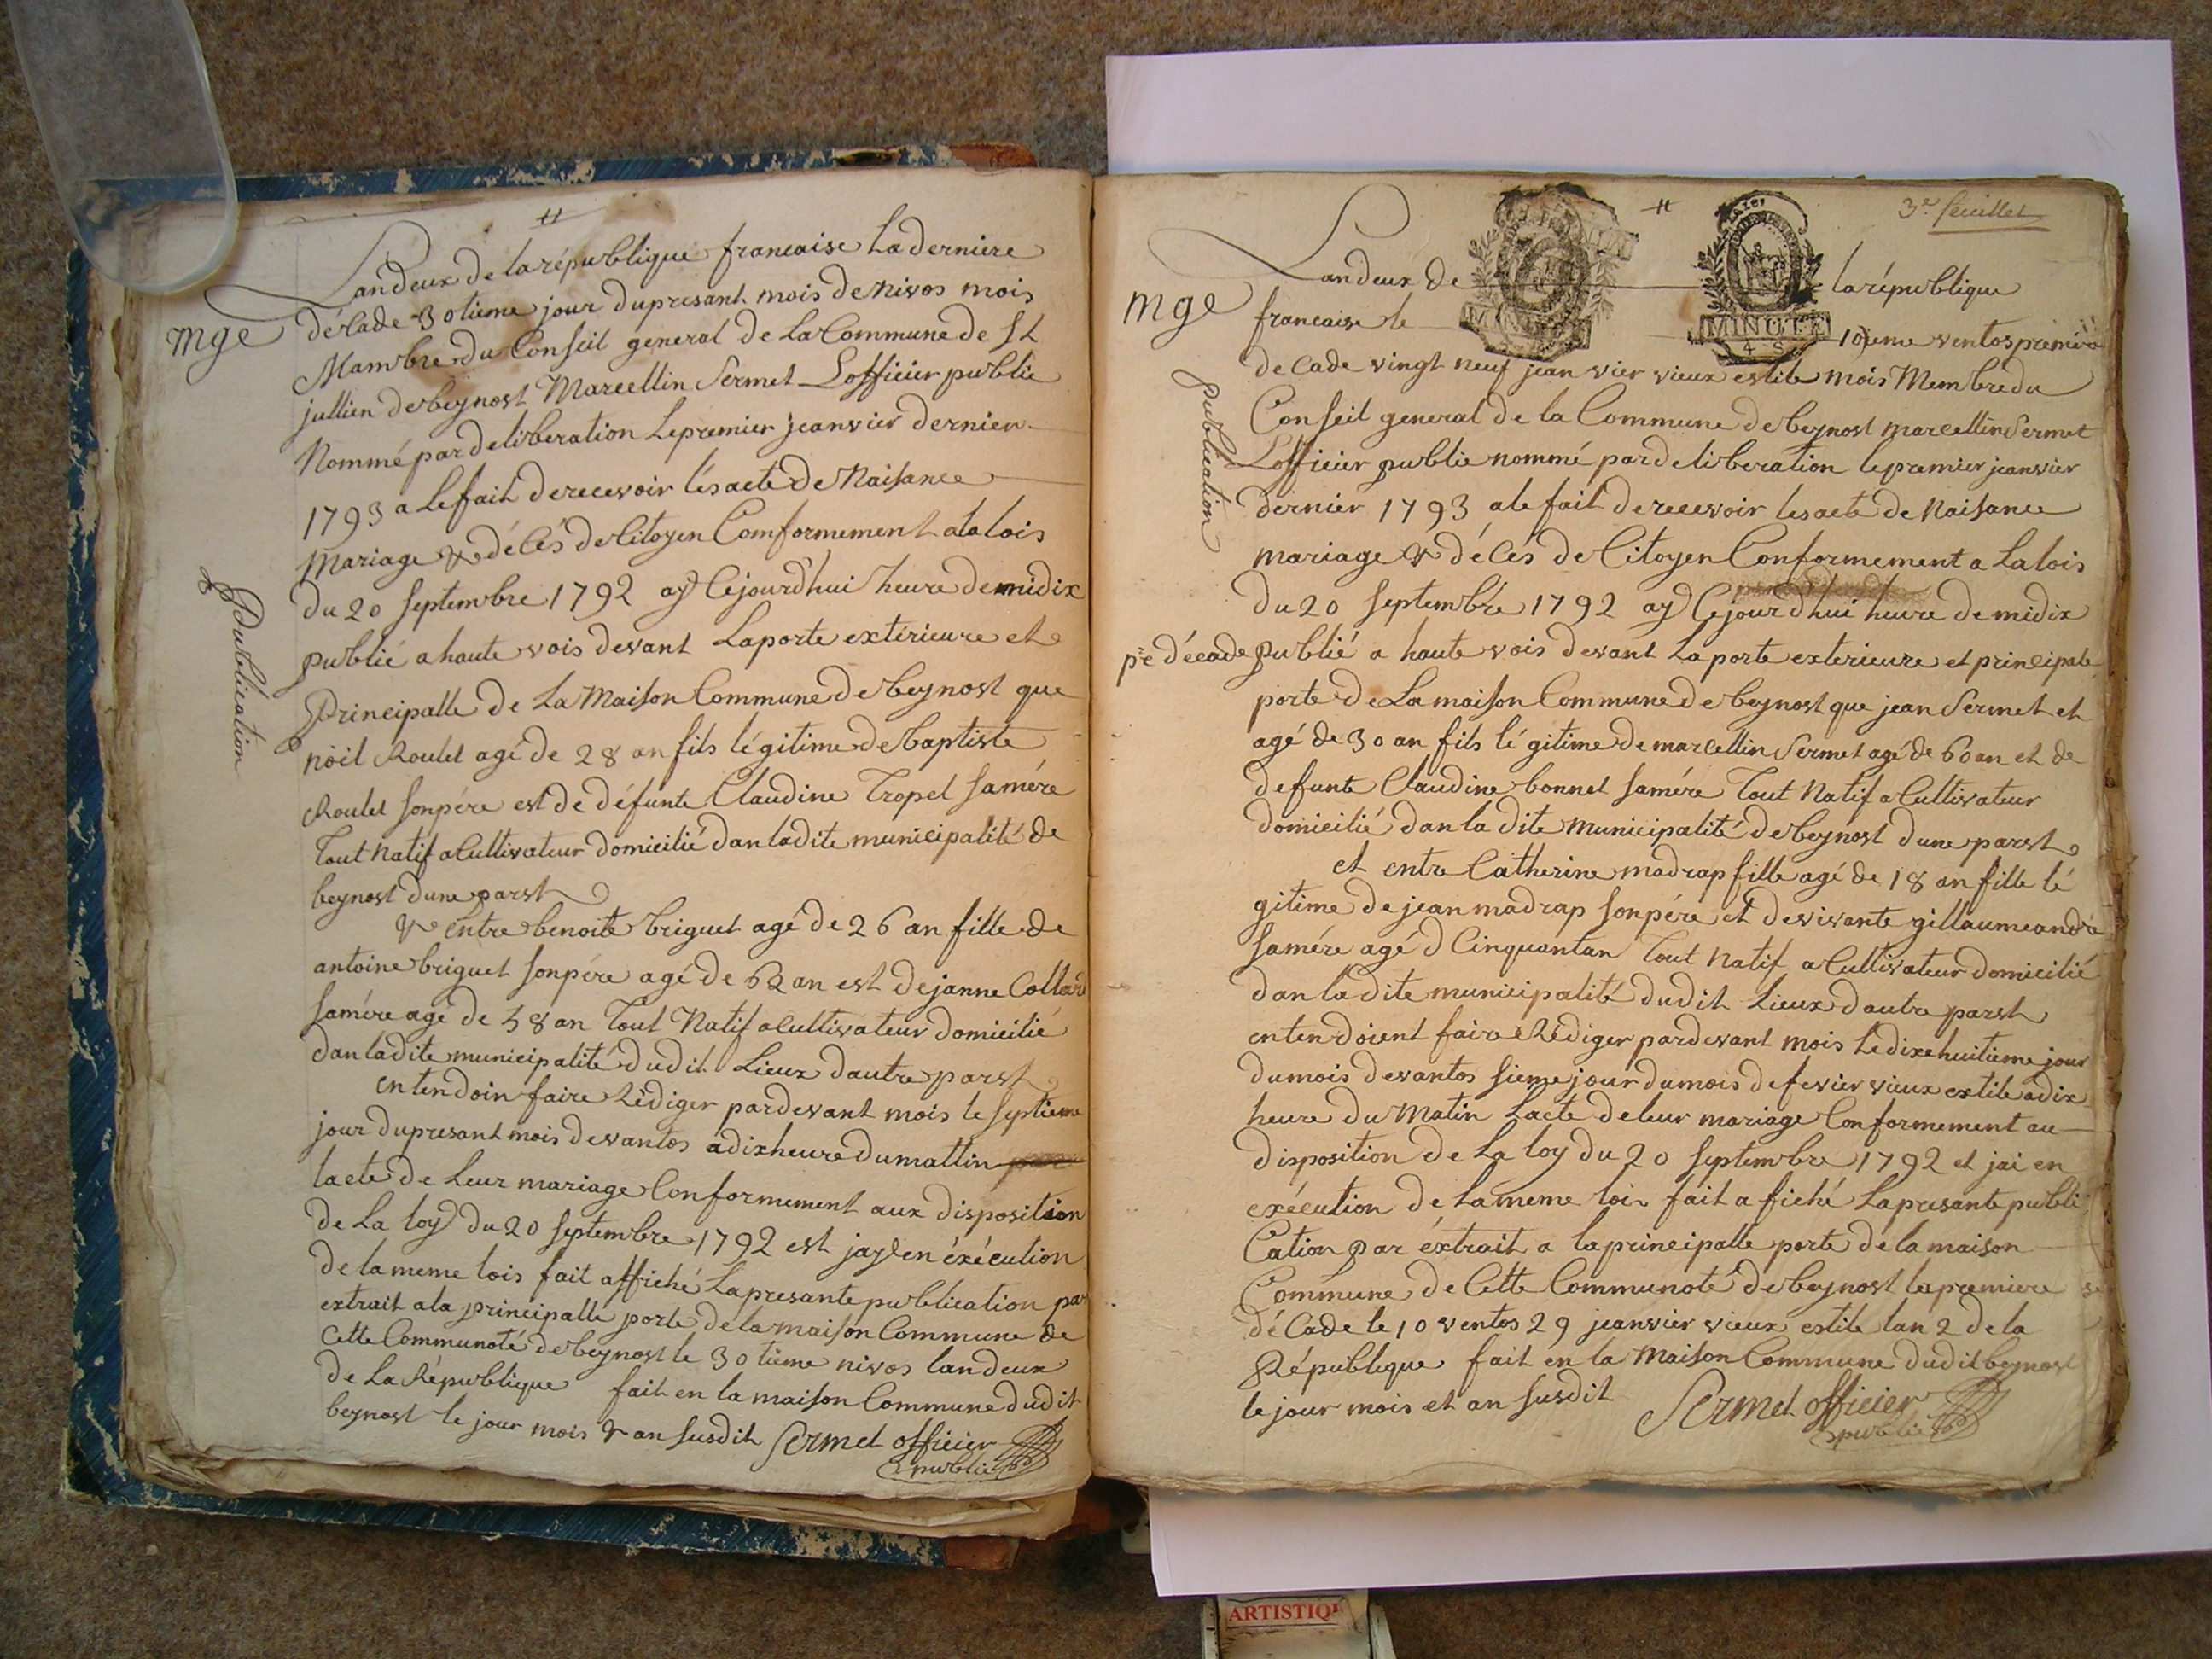 mge
Publication
Landeux de la république francaise La derniere
décade 30tieme jour du presant mois de Nivos mois
Mambre du Conseil general de La Commune de St
jullien de beynost Marcellin Sermet Lofficier public
Nommé par deliberation Le premier jeanvier dernier
1793 a Le fait de recevoir lés acte de Naisance
Mariage & décés de Citoyen Comformement a la lois
du 20 septembre 1792 ay Cejourd'hui heure de midix
publié a haute vois devant La porte extérieure et
Principalle de La Maison Commune de beynost que
noil Roulet agé de 28 an fils légitime de baptiste
Roulet son pére est de défunte Claudine Tropet sa mére
Tout Natif a Cultivateur domicilié dan la dite municipalité de
beynost dune parst
& entre benoite briguet agé de 26 an fille de
antoine briguet son pére agé de 62 an est de janne Collard
sa mére agé de 58 an Tout Natif a Cultivateur domicilié
dan la dite municipalité dudit Lieux dautre parst
entendoin faire Rédiger pardevant mois le septieme
jour du presant mois de vantos a dix heure du mattin
lacte de Leur mariage Conformement aux disposition
de La loy du 20 septembre 1792 est jay en éxécution
de la meme lois fait affiché La presante publication par
extrait a la principalle porte de la maison Commune de
Cette Communoté de beynost le 30 tième nivos landeux
de La République fait en la maison Commune dudit
beynost le jour mois & an susdit Sermet officier
public
3e feuillet
mge
Publication
Landeux de la république
francaise le 10ieme ventos premiere
MINUTE
4 S
decade vingt neuf jeanvier vieux estile mois Membre du
Conseil general de la Commune de beynost marcellin Sermet
Lofficier public nommé par deliberation le premier jeanvier
dernier 1793 a le fait de recevoir les acte de Naisance
mariage & décés de Citoyen Conformement a La lois
du 20 septembre 1792 ay Cejourd'hui heure de midix
pre décade publié a haute vois devant La porte exterieure et principale
porte de La maison Commune de beynost que jean Sermet et
agé de 30 an fils légitime de marcellin Sermet agé de 60 an et de
defunte Claudine bonnet sa mére Tout Natif a Cultivateur
domicilié dan la dite municipalité de beynost dune parst
et entre Catherine madrap fille agé de 18 an fille lé
gitime de jean madrap son pére et de vivante gillaume andré
sa mére agé d Cinquantan Tout Natif a Cultivateur domicilié
dan la dite municipalité dudit Lieux dautre parst
entendoient faire Rédiger pardevant mois Le dixe huitieme jour
du mois de vantos sieme jour du mois de fevier vieux extile a dix
heure du Matin Lacte de leur mariage Conformement au
disposition de La loy du 20 septembre 1792 et jai en
exécution de La meme loi fait afiché La presante publi
Cation par éxtrait a la principalle porte de la maison
Commune de Cette Communoté de beynost le premiere
décade le 10 ventos 29 jeanvier vieux estile lan 2 de la
République fait en la Maison Commune dudit beynost
le jour mois et an susdit Sermet officier
public
ARTISTIQ